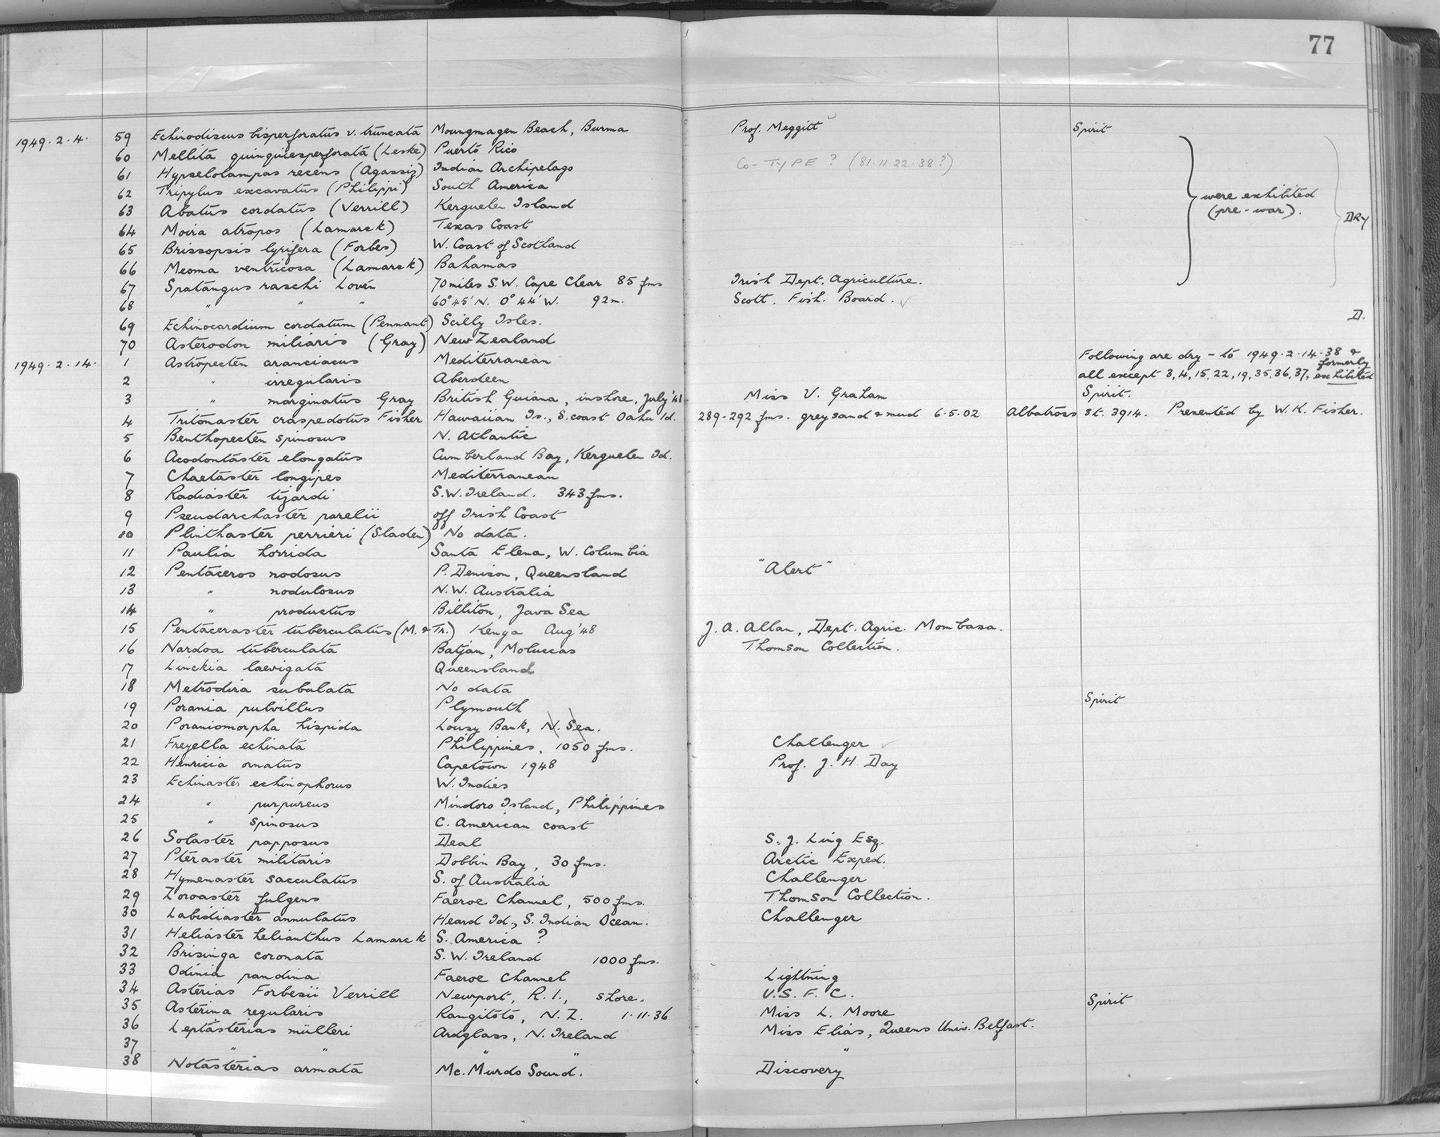 77
1949.2.4. 59 Echinodiscus bisperforatus v. truncata Moungmagen Beach, Burma Prof. Meggitt Spirit
60 Mellita quinquiesperforata (Leske) Puerto Rico
61 Hypselolampas recens (Agassiz) Indian Archipelago Co-TYPE? (81.11.22.38?)
62 Tripylus excavatus (Philippi) South America
63 Abatus cordatus (Verrill) Kerguelen Island were exhibited
(pre-war). DRY
64 Moira atropos (Lamarck) Texas Coast
65 Brissopsis lyrifera (Forbes) W. Coast of Scotland
66 Meoma ventricosa (Lamarck) Bahamas
67 Spatangus raschi Lovén 70 miles S.W. Cape Clear 85 fms Irish Dept. Agriculture.
68 " " " 60°45'N. 0°44'W. 92m. Scott. Fish. Board.
69 Echinocardium cordatum (Pennant) Scilly Isles. D.
70 Asterodon miliaris (Gray) New Zealand
1949.2.14. 1 Astropecten aranciacus Mediterranean Following are dry - to 1949.2.14.38 & formerly
2 " irregularis Aberdeen all except 3,4,15,22,19,35,36,37, exhibited
3 " marginatus Gray British Guiana, inshore, July '48. Miss V. Graham Spirit.
4 Tritonaster craspedotus Fisher Hawaiian Is., S. coast Oahu Id. 289-292 fms. grey sand & mud 6.5.02 Albatross St. 3914. Presented by W. K. Fisher.
5 Benthopecten spinosus N. Atlantic
6 Acodontaster elongatus Cumberland Bay, Kerguelen Id.
7 Chaetaster longipes Mediterranean
8 Radiaster tizardi S.W. Ireland. 343 fms.
9 Pseudarchaster parelii off Irish Coast
10 Plinthaster perrieri (Sladen) No data.
11 Paulia horrida Santa Elena, W. Columbia
12 Pentaceros nodosus P. Denison, Queensland "Alert"
13 " nodulosus N.W. Australia
14 " productus Billiton, Java Sea
15 Pentaceraster tuberculatus (M. & Tr.) Kenya Aug '48 J. A. Allan, Dept. Agric. Mombasa.
16 Nardoa tuberculata Batjan, Moluccas Thomson Collection.
17 Linckia laevigata Queensland
18 Metrodira subulata No data
19 Porania pulvillus Plymouth Spirit
20 Poraniomorpha hispida Lousy Bank, N. Sea.
21 Freyella echinata Philippines, 1050 fms. Challenger
22 Henricia ornatus Capetown 1948 Prof. J. H. Day
23 Echinaster echinophorus W. Indies
24 " purpureus Mindoro Island, Philippines
25 " spinosus C. American coast
26 Solaster papposus Deal S. J. Ling Esq.
27 Pteraster militaris Dobbin Bay, 30 fms. Arctic Exped.
28 Hymenaster sacculatus S. of Australia Challenger
29 Zoroaster fulgens Faeroe Channel, 500 fms. Thomson Collection.
30 Labidiaster annulatus Heard Id., S. Indian Ocean. Challenger
31 Heliaster helianthus Lamarck S. America ?
32 Brisinga coronata S.W. Ireland 1000 fms.
33 Odinia pandina Faeroe Channel Lightning
34 Asterias Forbesii Verrill Newport, R.I., shore. U.S.F.C. Spirit
35 Asterina regularis Rangitoto, N.Z. 1.11.36 Miss L. Moore
36 Leptasterias mülleri Ardglass, N. Ireland Miss Elias, Queens Univ. Belfast.
37 " " " " "
38 Notasterias armata Mc. Murdo Sound. Discovery